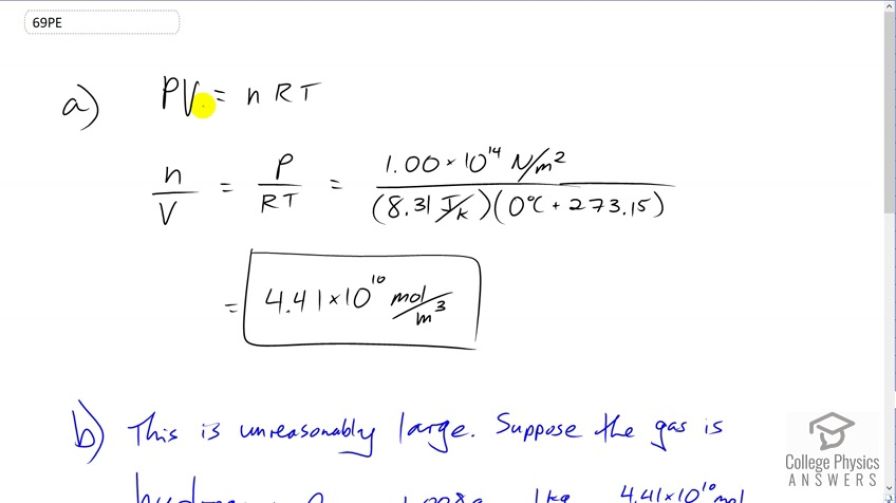 69PE
a) PV = nRT
n/V = P/RT = 1.00 × 10¹⁴ N/m² / (8.31 J/K)(0°C + 273.15)
= 4.41 × 10¹⁰ mol/m³
b) This is unreasonably large. Suppose the gas is
1kg 4.41×10¹⁰ mol
College Physics
ANSWERS